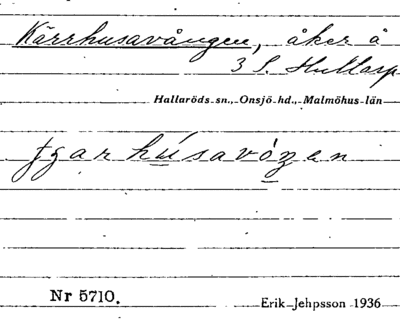 Kärrhusavången, åker å
3 S. Hullarp
Hallaröds sn., Onsjö hd., Malmöhus län
Nr 5710.
Erik Jehpsson 1936